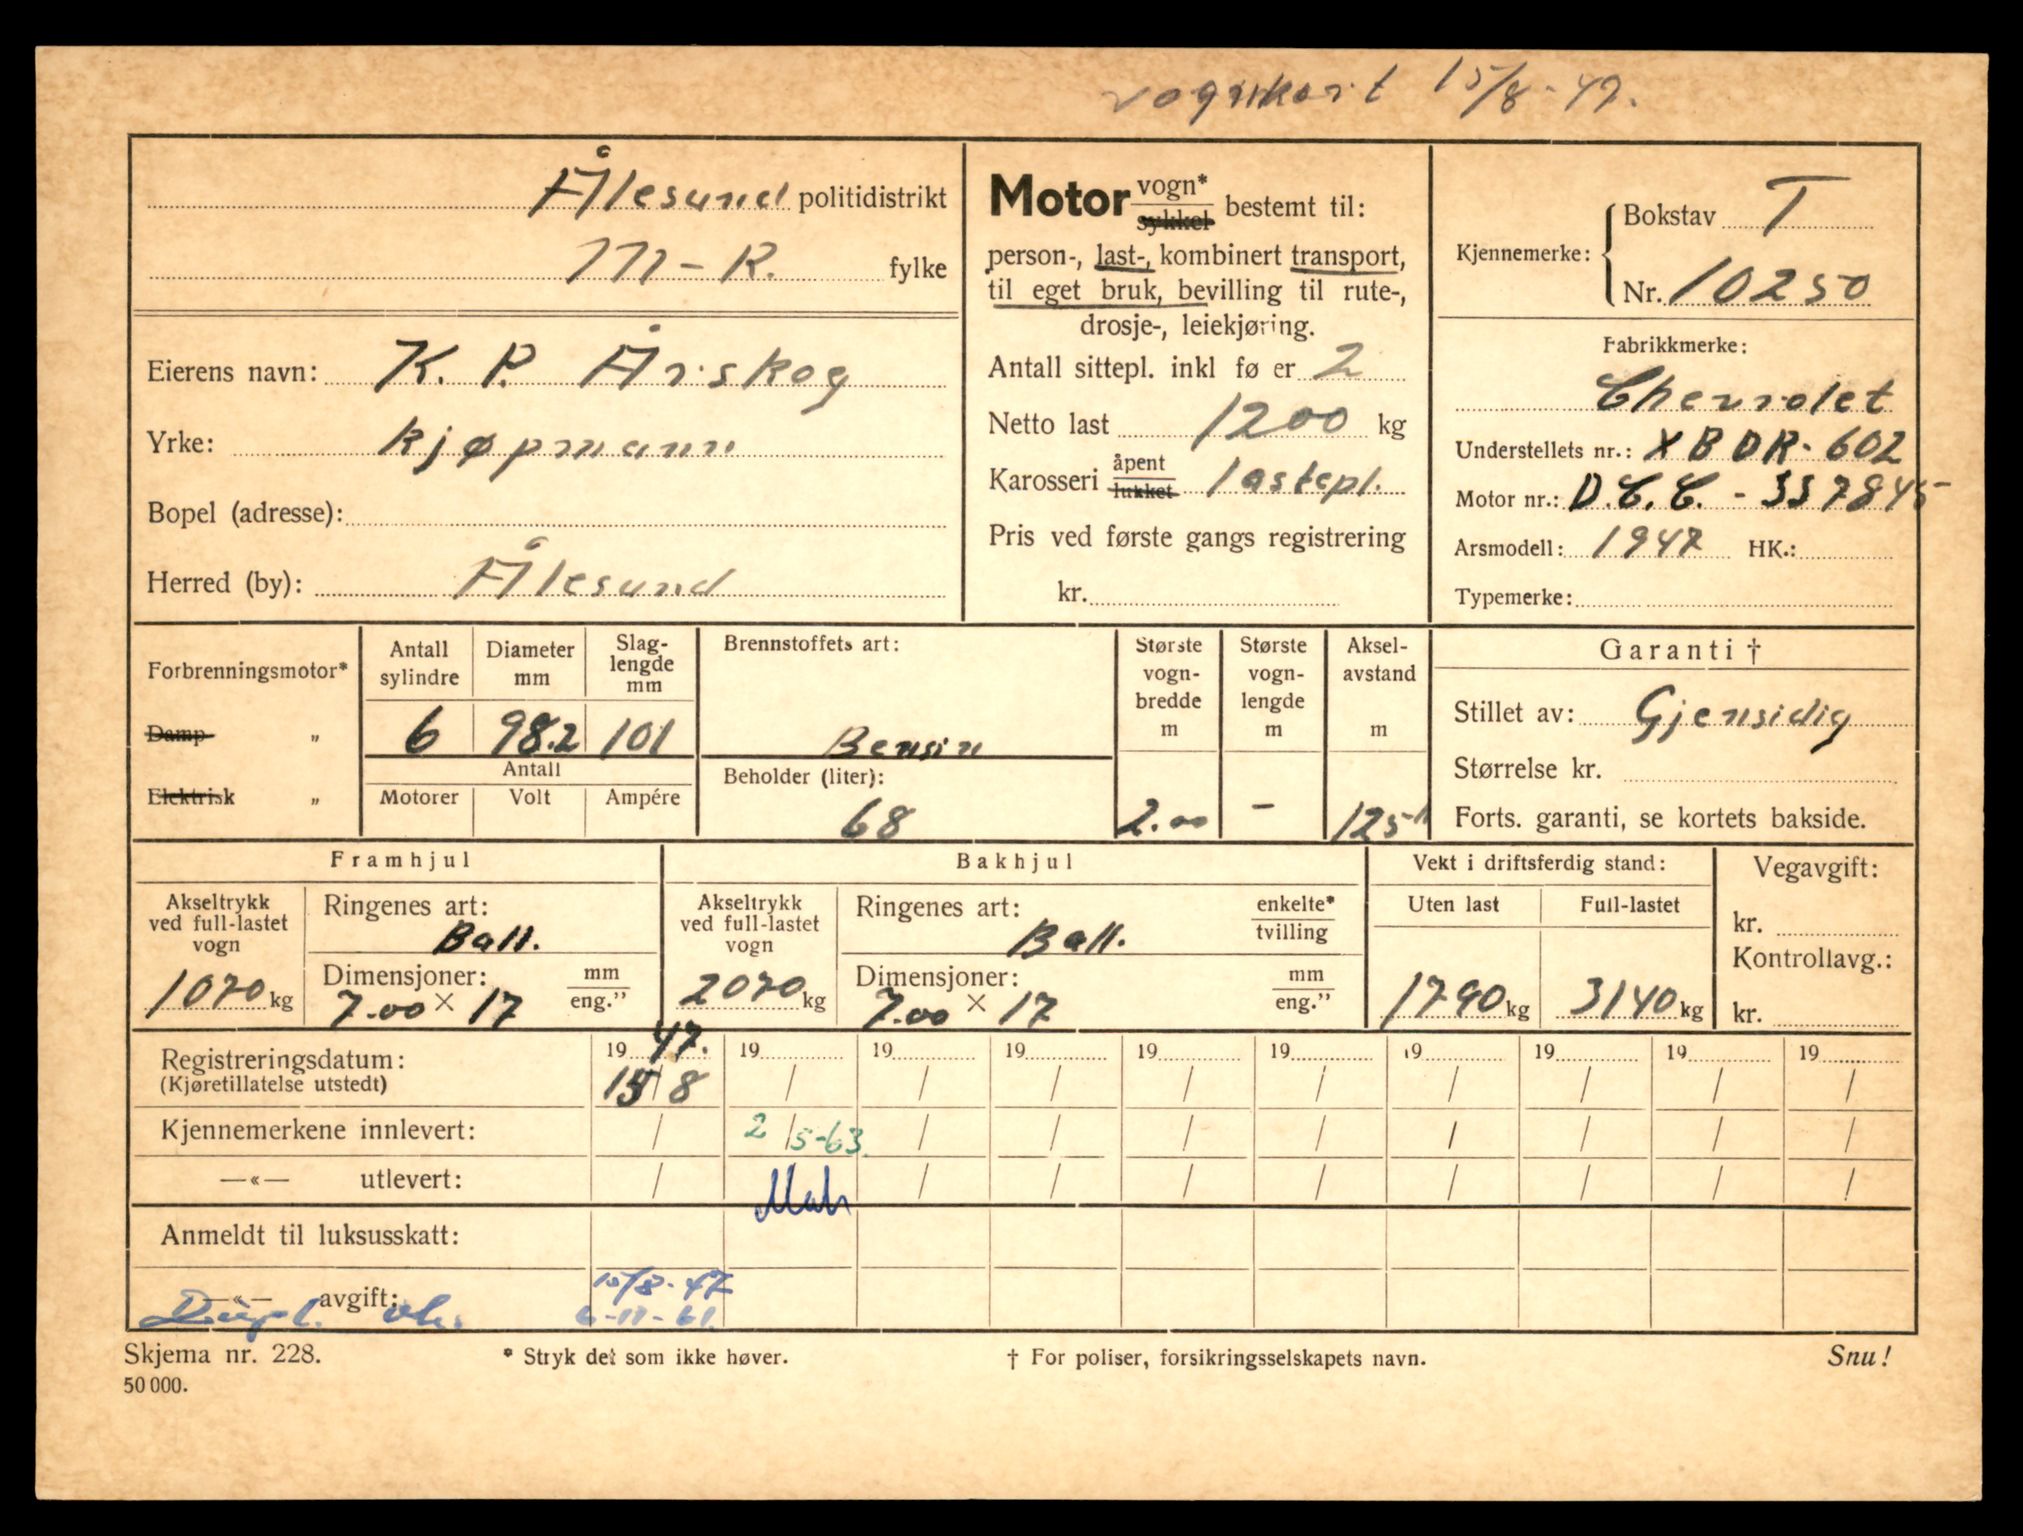 vognkort 15/8-47.
Ålesund politidistrikt
M-R. fylke
Eierens navn: K. P. Årskog
Yrke: kjøpmann
Bopel (adresse):
Herred (by): Ålesund
Motor vogn* sykkel bestemt til:
person-, last-, kombinert transport,
til eget bruk, bevilling til rute-,
drosje-, leiekjøring.
Antall sittepl. inkl fø er 2
Netto last 1200 kg
Karosseri åpent lukket lastepl.
Pris ved første gangs registrering
kr.
Kjennemerke: Bokstav T
Nr. 10250
Fabrikkmerke:
Chevrolet
Understellets nr.: XBDR-602
Motor nr.: D.C.C. - 557845
Arsmodell: 1947 HK.:
Typemerke:
Forbrenningsmotor*
Damp "
Elektrisk "
Antall sylindre
6
Diameter mm
98.2
Slag-lengde mm
101
Antall
Motorer Volt Ampére
Brennstoffets art:
Bensin
Beholder (liter):
68
Største vogn-bredde m
2.00
Største vogn-lengde m
-
Aksel-avstand m
125"
Garanti †
Stillet av: Gjensidig
Størrelse kr.
Forts. garanti, se kortets bakside.
Framhjul
Akseltrykk ved full-lastet vogn
1070 kg
Ringenes art:
Ball.
Dimensjoner: mm eng."
7.00 × 17
Bakhjul
Akseltrykk ved full-lastet vogn
2070 kg
Ringenes art: enkelte* tvilling
Ball.
Dimensjoner: mm eng."
7.00 × 17
Vekt i driftsferdig stand:
Uten last Full-lastet
1790 kg 3140 kg
Vegavgift:
kr.
Kontrollavg.:
kr.
Registreringsdatum: 19 47. 19 19 19 19 19 19 19 19 19
(Kjøretillatelse utstedt) 15/8 / / / / / / / / /
Kjennemerkene innlevert: / 2/5-63. / / / / / / / /
—«— utlevert: / / / / / / / / /
Anmeldt til luksusskatt:
15/8-47
—«— avgift:
Dupl. 6-11-61.
Skjema nr. 228. * Stryk det som ikke høver. † For poliser, forsikringsselskapets navn. Snu!
50 000.